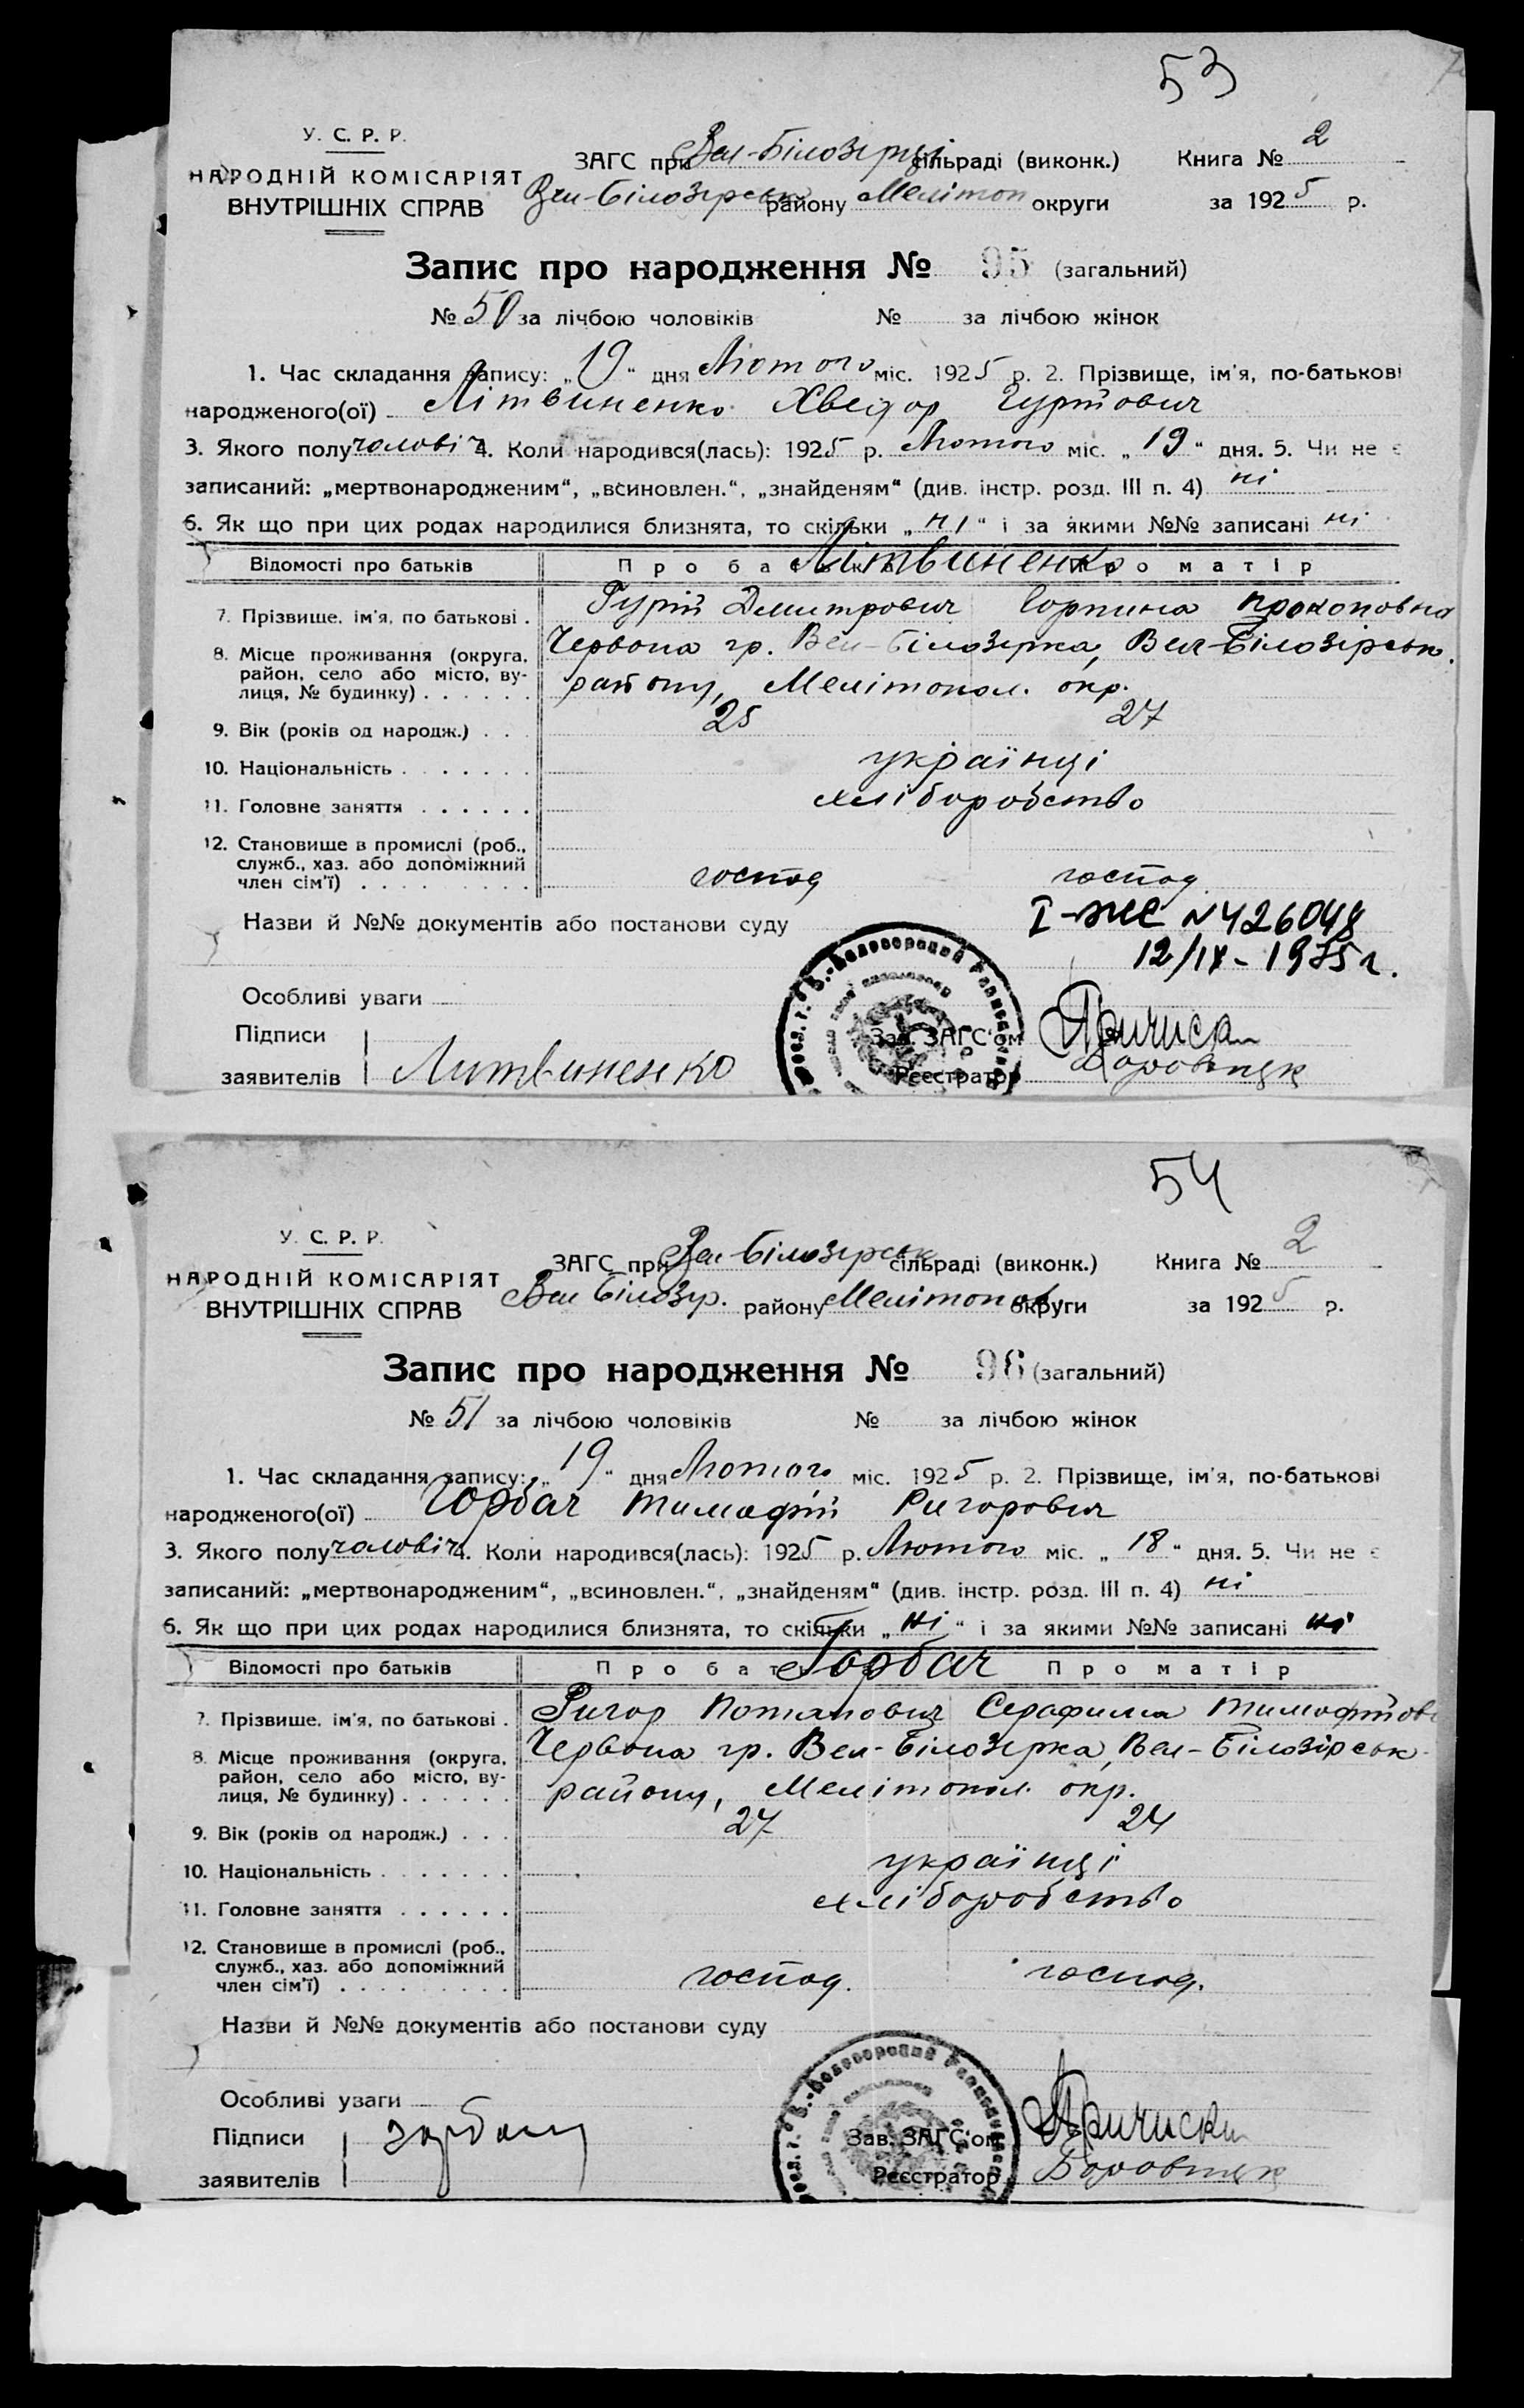 53
У. С. Р. Р.
НАРОДНІЙ КОМІСАРІЯТ
ВНУТРІШНІХ СПРАВ
ЗАГС при Вел-Білозерці сільраді (виконк.) Книга № 2
Вел-Білозерськ району Мелітоп округи за 1925 р.
Запис про народження № 95 (загальний)
№ 50 за лічбою чоловіків № за лічбою жінок
1. Час складання запису: „19“ дня Лютого міс. 1925 р. 2. Прізвище, ім'я, по-батькові
народженого(ої) Літвиненко Хведор Гурійович
3. Якого полу чоловіч 4. Коли народився(лась): 1925 р. Лютого міс. „19“ дня. 5. Чи не є
записаний: „мертвонародженим“, „всиновлен.“, „знайденям“ (див. інстр. розд. III п. 4) ні
6. Як що при цих родах народилися близнята, то скільки „ні“ і за якими №№ записані ні
Відомості про батьків Про батька Літвиненко Про матір
7. Прізвище, ім'я, по батькові . Гурій Дмитрович Горпина Прокоповна
8. Місце проживання (округа, Червона гр. Вел-Білозерка, Вел-Білозірськ.
район, село або місто, ву-
лиця, № будинку) . . . . . . району, Мелітопол. окр.
9. Вік (років од народж.) . . . 25 27
10. Національність . . . . . . . українці
11. Головне заняття . . . . . . хліборобство
12. Становище в промислі (роб.,
служб., хаз. або допоміжний
член сім'ї) . . . . . . . . . господ господ
Назви й №№ документів або постанови суду I-ЖЕ N426048
12/IX-1975 г.
Особливі уваги
Підписи
заявителів Литвиненко
Зав. ЗАГС'ом
Реєстратор
54
У. С. Р. Р.
НАРОДНІЙ КОМІСАРІЯТ
ВНУТРІШНІХ СПРАВ
ЗАГС при Вел Білозерськ сільраді (виконк.) Книга № 2
Вел Білозер. району Мелітопол округи за 1925 р.
Запис про народження № 96 (загальний)
№ 51 за лічбою чоловіків № за лічбою жінок
1. Час складання запису: „19“ дня Лютого міс. 1925 р. 2. Прізвище, ім'я, по-батькові
народженого(ої) Горбач Тимофій Ригорович
3. Якого полу чоловіч 4. Коли народився(лась): 1925 р. Лютого міс. „18“ дня. 5. Чи не є
записаний: „мертвонародженим“, „всиновлен.“, „знайденям“ (див. інстр. розд. III п. 4) ні
6. Як що при цих родах народилися близнята, то скільки „ні“ і за якими №№ записані ні
Відомості про батьків Про батька Горбач Про матір
7. Прізвище, ім'я, по батькові . Ригор Потапович Серафима Тимофійов
8. Місце проживання (округа, Червона гр. Вел-Білозерка, Вел-Білозірськ
район, село або місто, ву-
лиця, № будинку) . . . . . . району, Мелітопол. окр.
9. Вік (років од народж.) . . . 27 24
10. Національність . . . . . . . українці
11. Головне заняття . . . . . . хліборобство
12. Становище в промислі (роб.,
служб., хаз. або допоміжний
член сім'ї) . . . . . . . . . господ. господ.
Назви й №№ документів або постанови суду
Особливі уваги
Підписи Горбач
заявителів
Зав. ЗАГС'ом
Реєстратор